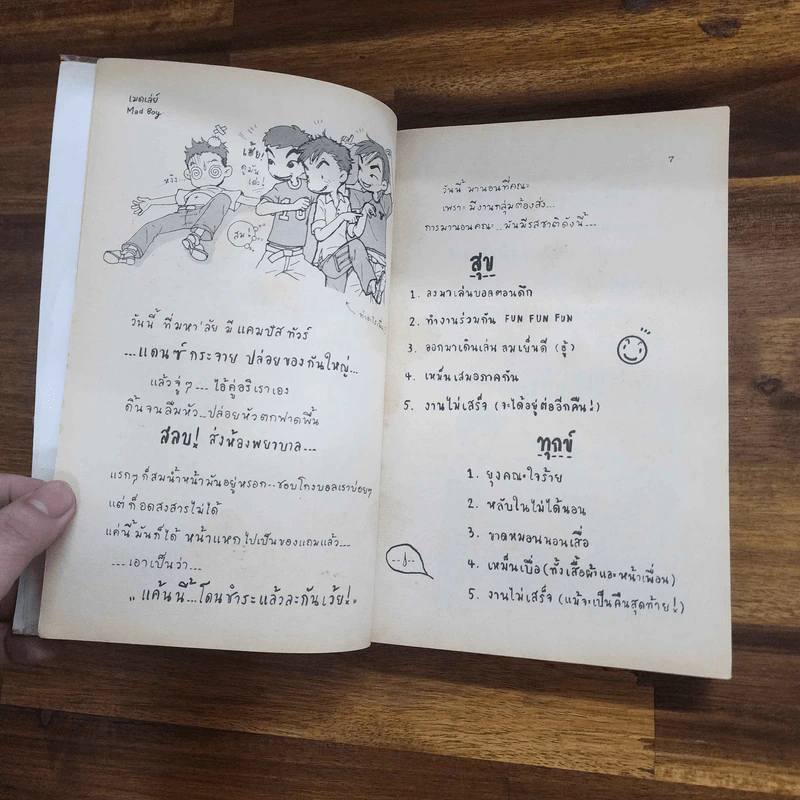 เมดเล่ย์
Mad Boy
หงิง
เฮ้ย!
ดูมัน
เด่ะ!
สม!
วันนี้ ที่มหา'ลัย มีแคมปัสทัวร์
...แดนซ์กระจาย ปล่อยของกันใหญ่...
แล้วจู่ๆ... ไอ้คู่อริเราเอง
ดิ้นจนลืมหัว...ปล่อยหัวตกฟาดพื้น
สลบ! ส่งห้องพยาบาล...
แรกๆก็สมน้ำหน้ามันอยู่หรอก..ชอบโกงบอลเราบ่อยๆ
แต่ก็อดสงสารไม่ได้
แค่นี้มันก็ได้ หน้าแหกไปเป็นของแถมแล้ว...
...เอาเป็นว่า...
"แค้นนี้...โดนชำระแล้วละกันเว้ย!"
7
วันนี้ มานอนที่คณะ
เพราะ มีงานกลุ่มต้องส่ง...
การมานอนคณะ...มันมีรสชาติดังนี้...
สุข
1. ลงมาเล่นบอลตอนดึก
2. ทำงานร่วมกัน FUN FUN FUN
3. ออกมาเดินเล่น ลมเย็นดี (อู้)
4. เหม็นเสมอภาคกัน
5. งานไม่เสร็จ (จะได้อยู่ต่ออีกคืน!)
ทุกข์
1. ยุงคณะใจร้าย
2. หลับในไม่ได้นอน
3. ขาดหมอนนอนเสื่อ
4. เหม็นเบื่อ (ทั้งเสื้อผ้าและหน้าเพื่อน)
5. งานไม่เสร็จ (แม้จะเป็นคืนสุดท้าย!)